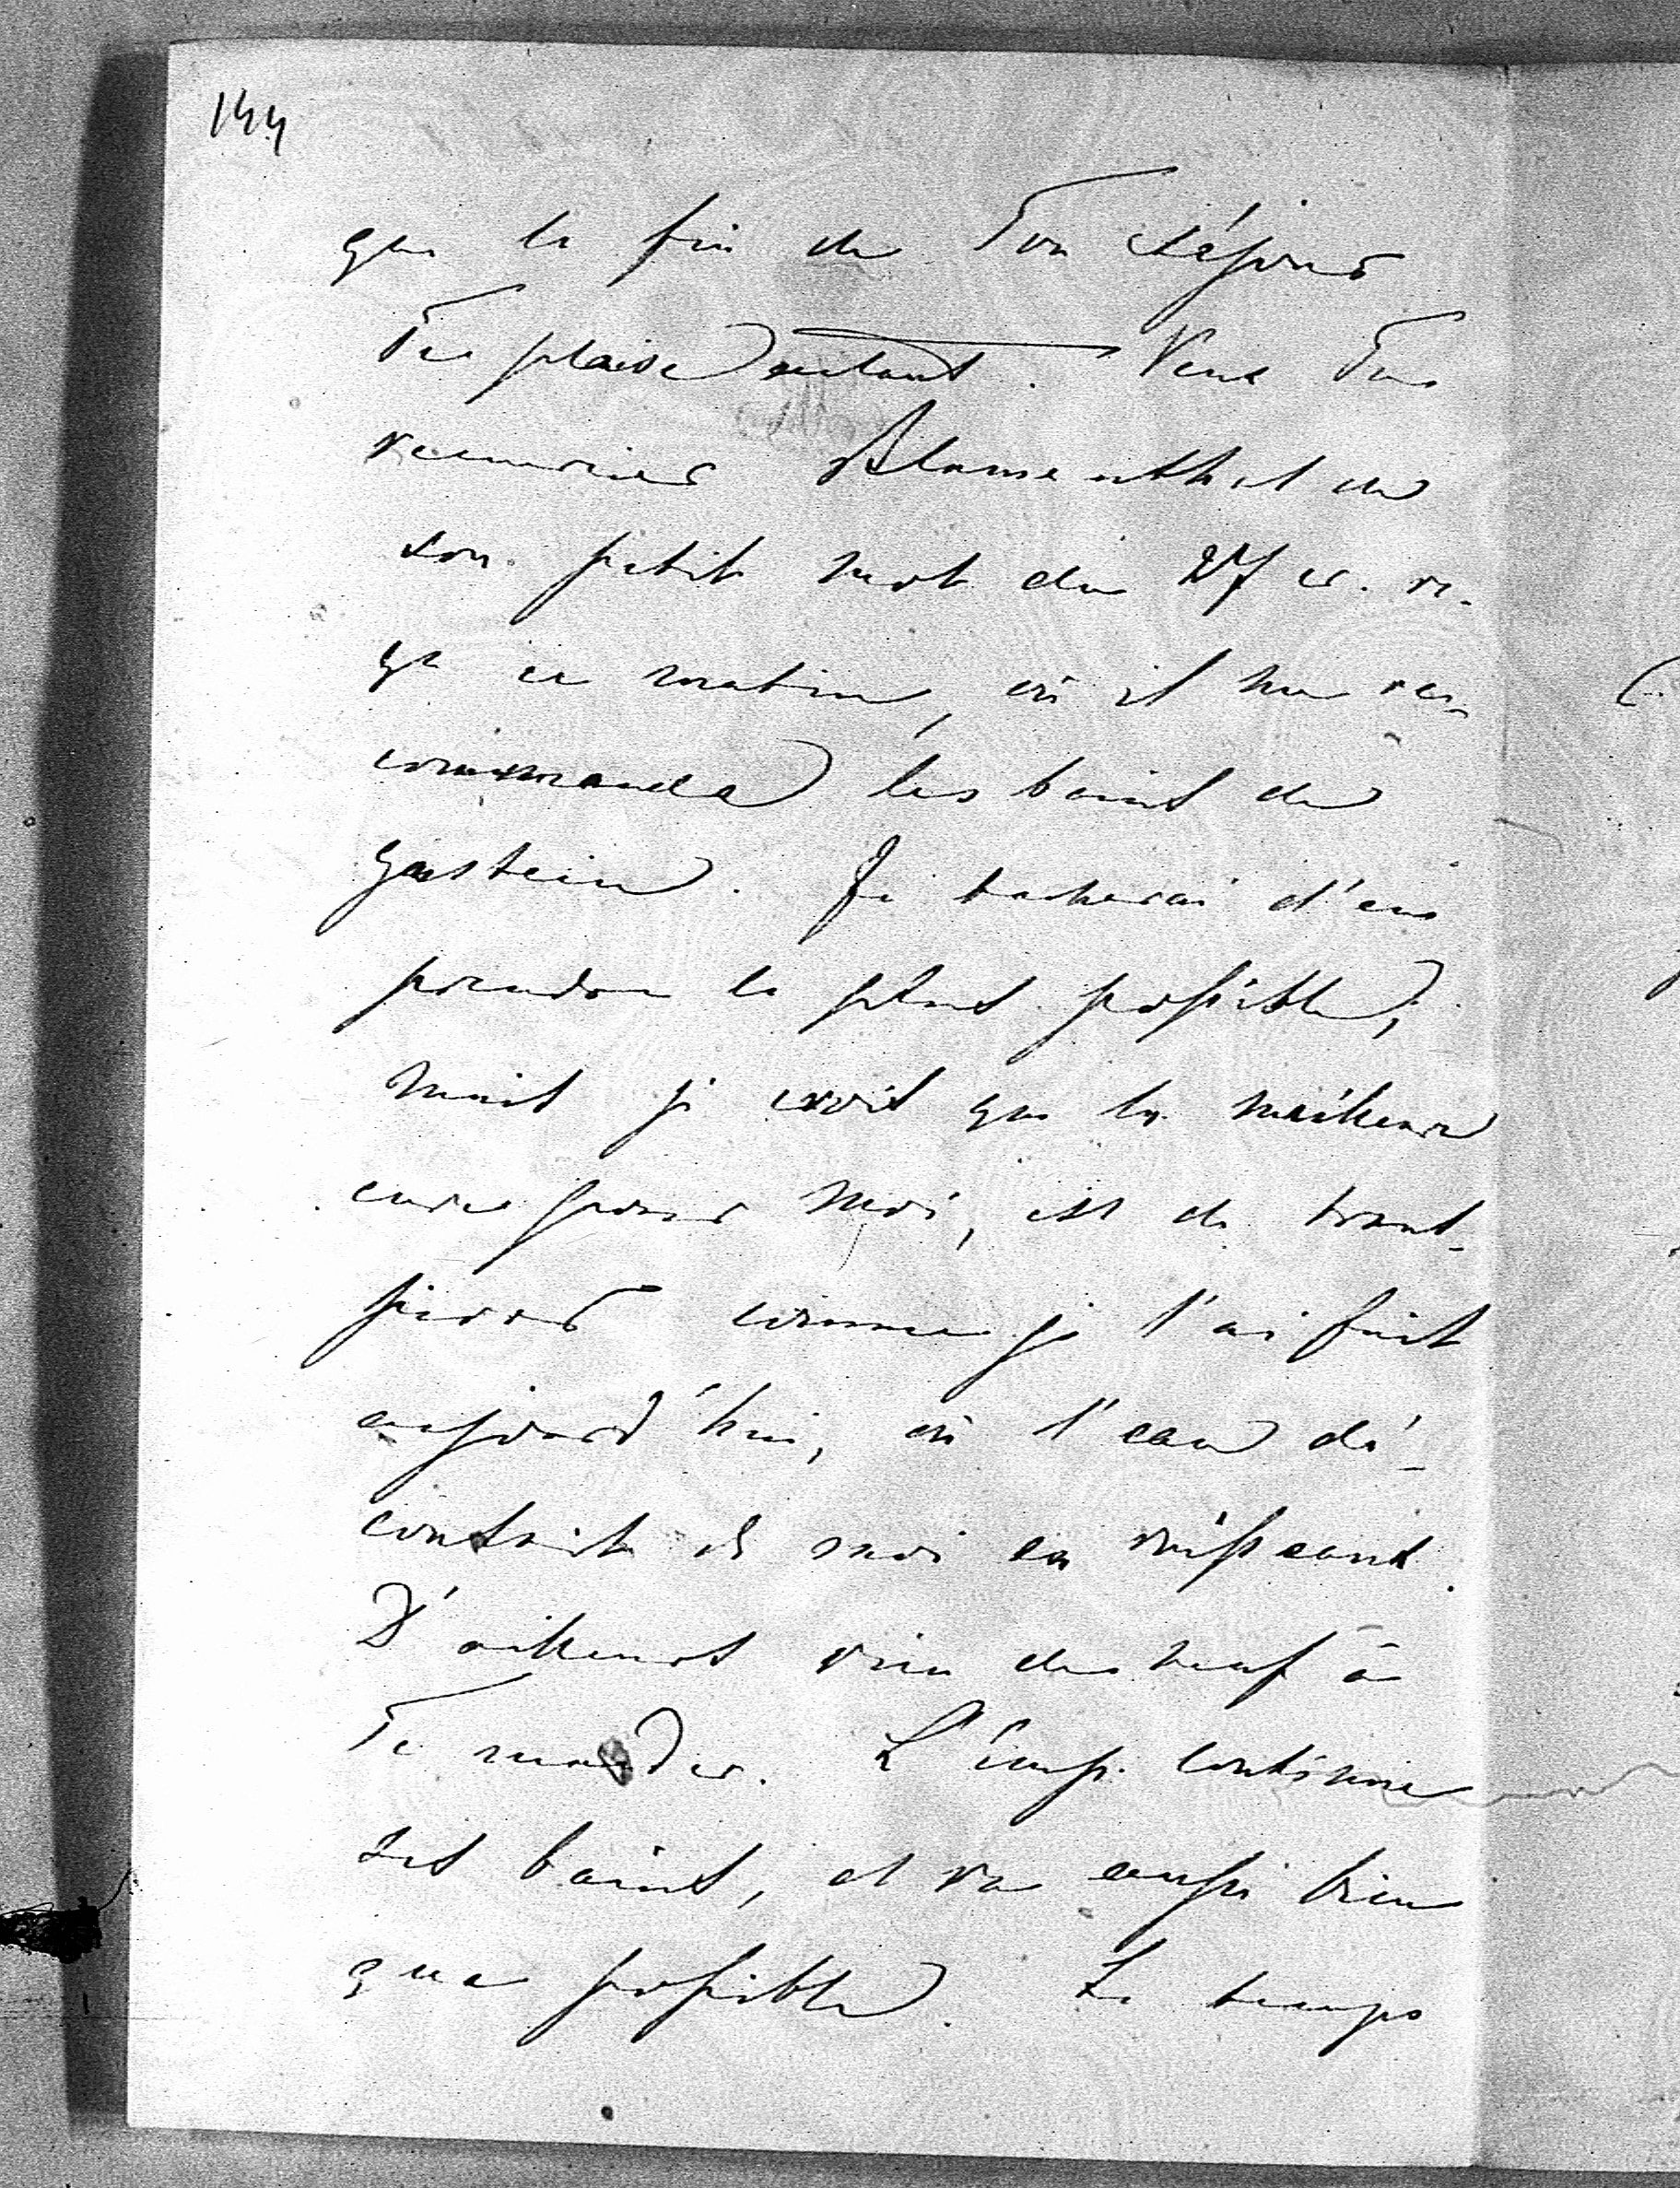 144
que la fin de Ton séjour
Te plaise autant. Veux Tu
remercier Blumenthal de
son petit mot du 27 c. r.
ça ce matin, où il me re-
commande les bains de
Gastein. Je tacherai d'en
prendre le plus possible,
mais je crois que la meilleure
cure pour moi, est de trans-
pirer comme je l'ai fait
aujourd'hui, où l'eau dé-
coulait de moi en ruisseaux.
D'ailleurs rien de neuf à
Te mander. L'Emp. continue
ses bains, et va aussi bien
que possible. Le temps